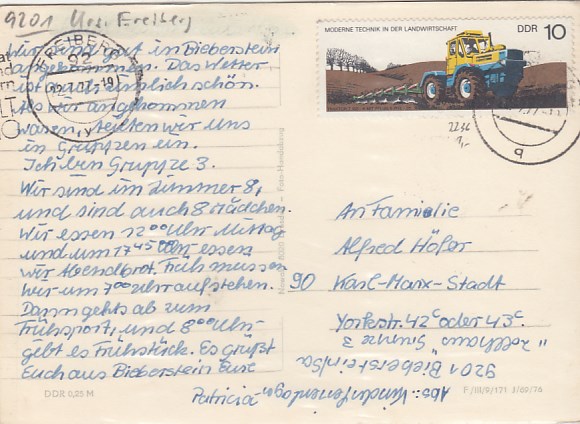 9201 Krs. Freiberg
FREIBERG
92
MODERNE TECHNIK IN DER LANDWIRTSCHAFT DDR 10
2236
Wir sind gut in Bieberstein
angekommen. Das Wetter
ist ziemlich schön.
Als wir angekommen
waren, teilten wir uns
in Gruppen ein.
Ich bin Gruppe 3.
Wir sind im Zimmer 8,
und sind auch 8 Mädchen.
Wir essen 12 00 Uhr Mittag
und um 17 45 Uhr essen
wir Abendbrot. Früh müssen
wir um 7 00 Uhr aufstehen.
Dann gehts ab zum
Frühsport, und 8 00 Uhr
gebt es Frühstück. Es grüßt
Euch aus Bieberstein Eure
Patricia
An Familie
Alfred Höfer
90 Karl-Marx-Stadt
Yorkstr. 42c oder 43c.
Abs: Kinderferienlager
9201 Bieberstein/Sa
"Zollhaus"
DDR 0,25 M
F/III/9/171 3/69/76